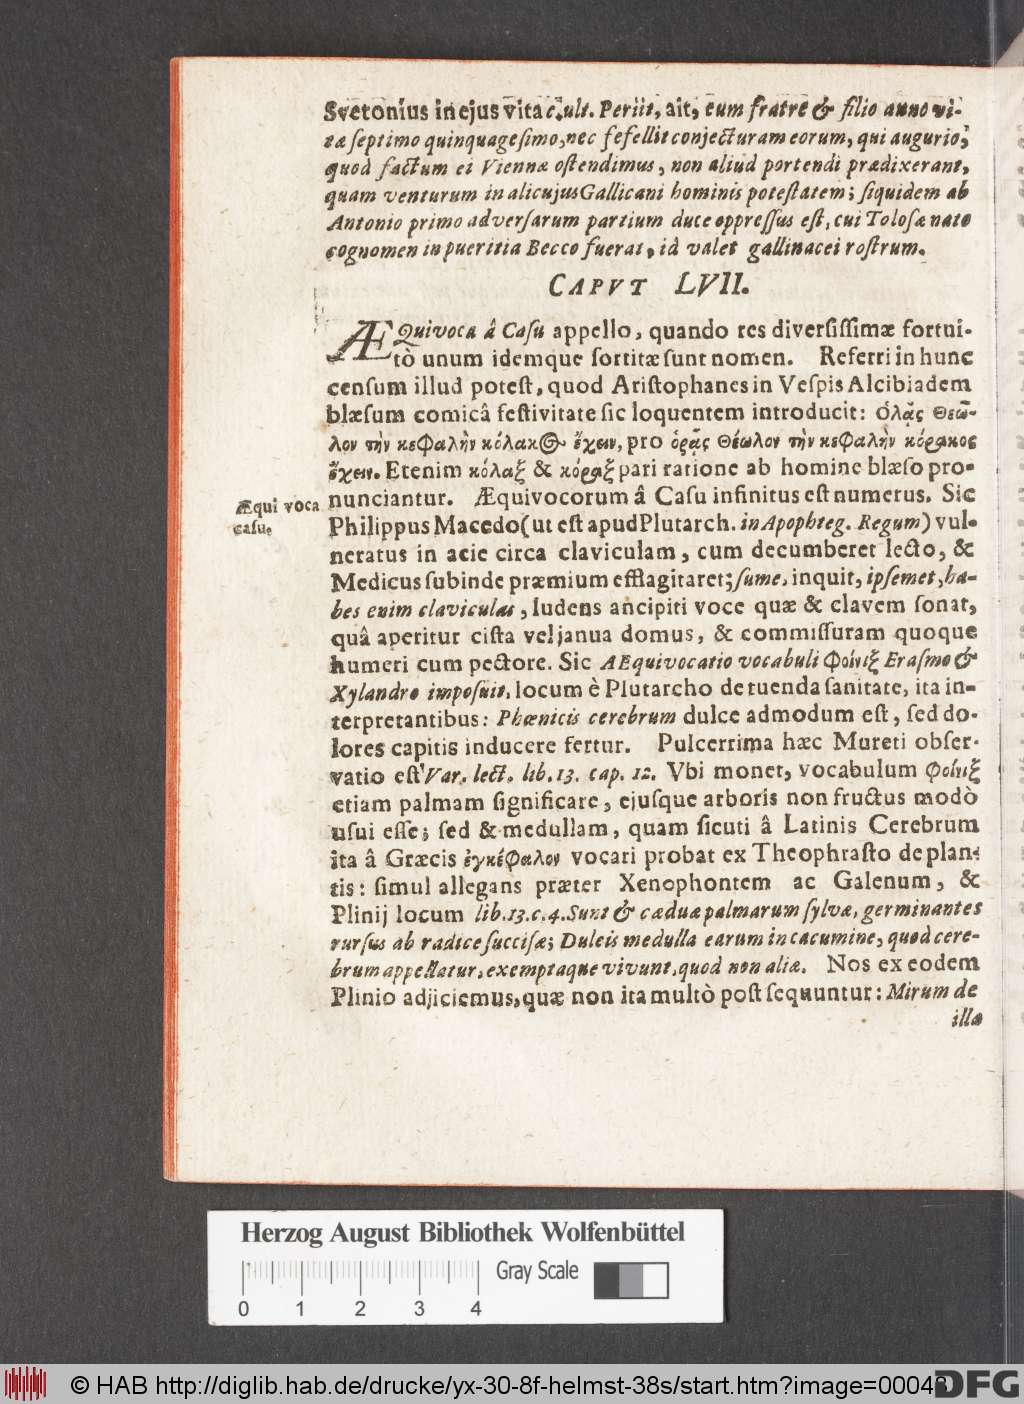 Svetonius in ejus vita c. ult. Periit, ait, cum fratre & filio anno vi-
tæ septimo quinquagesimo, nec fefellit conjecturam eorum, qui augurio,
quod factum ei Viennæ ostendimus, non aliud portendi prædixerant,
quam venturum in alicujus Gallicani hominis potestatem; siquidem ab
Antonio primo adversarum partium duce oppressus est, cui Tolosæ nato
cognomen in pueritia Becco fuerat, id valet gallinacei rostrum.
CAPVT LVII.
ÆQuivoca â Casu appello, quando res diversissimæ fortui-
tò unum idemque sortitæ sunt nomen. Referri in hunc
censum illud potest, quod Aristophanes in Vespis Alcibiadem
blæsum comicâ festivitate sic loquentem introducit: ὁλᾷς Θεω-
λον τὴν κεφαλὴν κόλακος ἔχειν, pro ὁρᾷς Θέωλον τὴν κεφαλὴν κόρακος
ἔχειν. Etenim κόλαξ & κόραξ pari ratione ab homine blæso pro-
nunciantur. Æquivocorum â Casu infinitus est numerus. Sic
Æqui voca
casu.
Philippus Macedo (ut est apud Plutarch. in Apophteg. Regum) vul-
neratus in acie circa claviculam, cum decumberet lecto, &
Medicus subinde præmium efflagitaret; sume, inquit, ipsemet, ha-
bes enim claviculas, ludens ancipiti voce quæ & clavem sonat,
quâ aperitur cista vel janua domus, & commissuram quoque
humeri cum pectore. Sic AEquivocatio vocabuli Φοίνιξ Erasmo &
Xylandro imposuit, locum è Plutarcho de tuenda sanitate, ita in-
terpretantibus: Phœnicis cerebrum dulce admodum est, sed do-
lores capitis inducere fertur. Pulcerrima hæc Mureti obser-
vatio est Var. lect. lib. 13. cap. 12. Vbi monet, vocabulum φοίνιξ
etiam palmam significare, ejusque arboris non fructus modò
usui esse; sed & medullam, quam sicuti â Latinis Cerebrum
ita â Græcis ἐγκέφαλον vocari probat ex Theophrasto de plan-
tis: simul allegans præter Xenophontem ac Galenum, &
Plinij locum lib. 13. c. 4. Sunt & cæduæ palmarum sylvæ, germinantes
rursus ab radice succisæ; Dulcis medulla earum in cacumine, quod cere-
brum appellatur, exemptaque vivunt, quod non aliæ. Nos ex eodem
Plinio adjiciemus, quæ non ita multò post sequuntur: Mirum de
illa
Herzog August Bibliothek Wolfenbüttel
Gray Scale
0 1 2 3 4
© HAB http://diglib.hab.de/drucke/yx-30-8f-helmst-38s/start.htm?image=00048
DFG